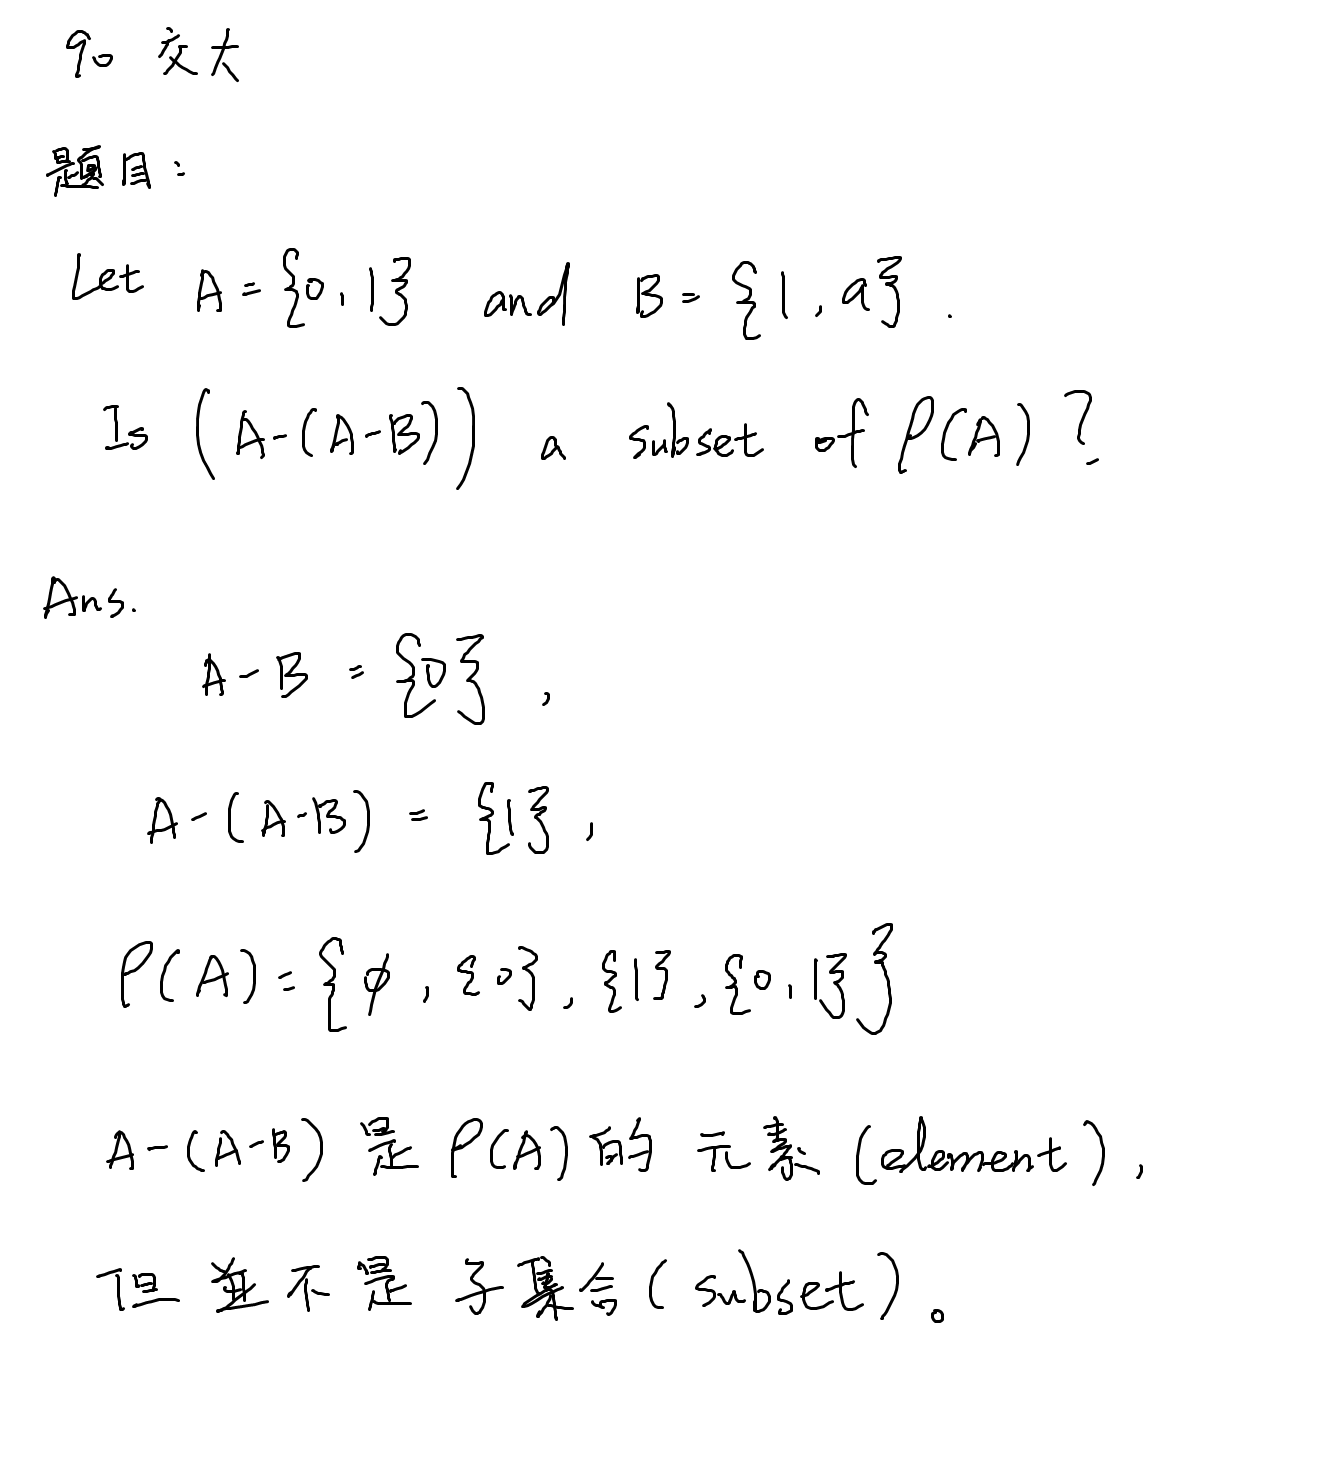 90 交大
題目:
Let A = {0, 1} and B = {1, a}.
Is (A-(A-B)) a subset of P(A)?
Ans.
A-B = {0},
A-(A-B) = {1},
P(A) = {ϕ, {0}, {1}, {0, 1}}
A-(A-B) 是 P(A) 的 元素 (element),
但並不是 子集合 (subset)。